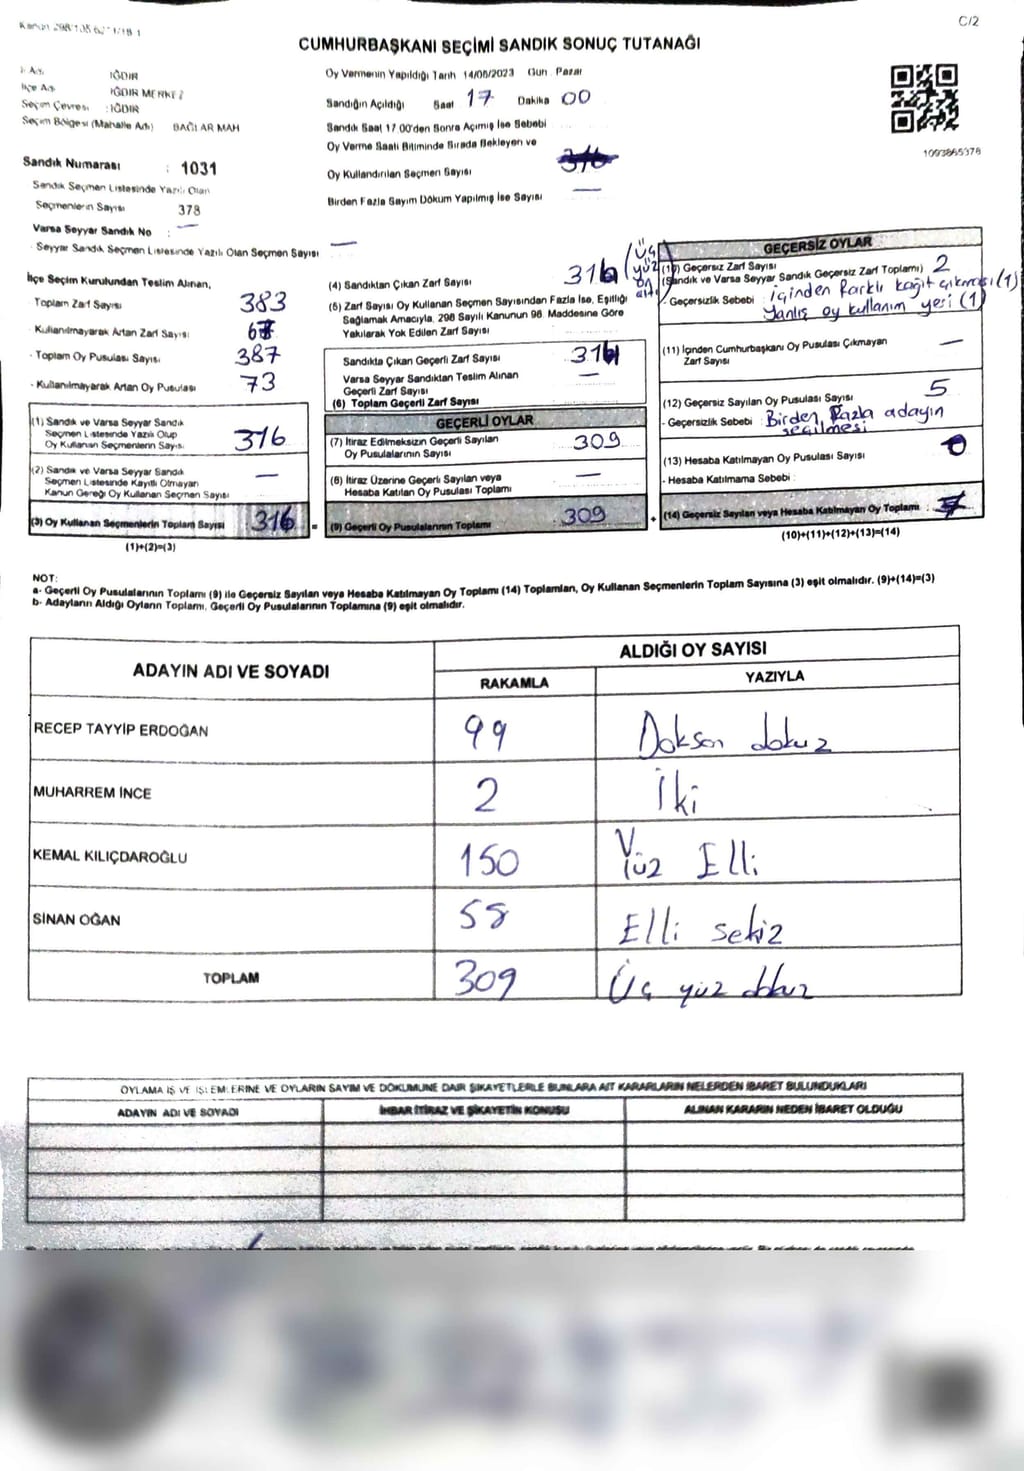 C/2
CUMHURBAŞKANI SEÇİMİ SANDIK SONUÇ TUTANAĞI
İl Adı IĞDIR
İlçe Adı IĞDIR MERKEZ
Seçim Çevresi : IĞDIR
Seçim Bölgesi (Mahalle Adı) BAĞLAR MAH
Sandık Numarası : 1031
Sandık Seçmen Listesinde Yazılı Olan
Seçmenlerin Sayısı 378
Varsa Seyyar Sandık No : —
- Seyyar Sandık Seçmen Listesinde Yazılı Olan Seçmen Sayısı —
Oy Vermenin Yapıldığı Tarih 14/05/2023 Gün Pazar
Sandığın Açıldığı Saat 17 Dakika 00
Sandık Saat 17 00'den Sonra Açımış İse Sebebi
Oy Verme Saati Bitiminde Sırada Bekleyen ve
Oy Kullandırılan Seçmen Sayısı
Birden Fazla Sayım Döküm Yapılmış İse Sayısı —
1093865378
İlçe Seçim Kurulundan Teslim Alınan,
- Toplam Zarf Sayısı 383
- Kullanılmayarak Artan Zarf Sayısı
- Toplam Oy Pusulası Sayısı 387
- Kullanılmayarak Artan Oy Pusulası 73
(1) Sandık ve Varsa Seyyar Sandık
Seçmen Listesinde Yazılı Olup
Oy Kullanan Seçmenlerin Sayısı 316
(2) Sandık ve Varsa Seyyar Sandık
Seçmen Listesinde Kayıtlı Olmayan
Kanun Gereği Oy Kullanan Seçmen Sayısı —
(3) Oy Kullanan Seçmenlerin Toplam Sayısı 316 =
(1)+(2)=(3)
(4) Sandıktan Çıkan Zarf Sayısı 316 (üç yüz on altı)
(5) Zarf Sayısı Oy Kullanan Seçmen Sayısından Fazla İse, Eşitliği
Sağlamak Amacıyla, 298 Sayılı Kanunun 98. Maddesine Göre
Yakılarak Yok Edilen Zarf Sayısı
Sandıkta Çıkan Geçerli Zarf Sayısı 314
Varsa Seyyar Sandıktan Teslim Alınan —
Geçerli Zarf Sayısı
(6) Toplam Geçerli Zarf Sayısı
GEÇERLİ OYLAR
(7) İtiraz Edilmeksizin Geçerli Sayılan 309
Oy Pusulalarının Sayısı
(8) İtiraz Üzerine Geçerli Sayılan veya —
Hesaba Katılan Oy Pusulası Toplamı
(9) Geçerli Oy Pusulalarının Toplamı 309 +
GEÇERSİZ OYLAR
(10) Geçersiz Zarf Sayısı 2
(Sandık ve Varsa Seyyar Sandık Geçersiz Zarf Toplamı)
- Geçersizlik Sebebi : içinden farklı kağıt çıkması (1)
Yanlış oy kullanım yeri (1)
(11) İçinden Cumhurbaşkanı Oy Pusulası Çıkmayan —
Zarf Sayısı
(12) Geçersiz Sayılan Oy Pusulası Sayısı 5
- Geçersizlik Sebebi : Birden fazla adayın
seçilmesi
(13) Hesaba Katılmayan Oy Pusulası Sayısı 0
- Hesaba Katılmama Sebebi :
(14) Geçersiz Sayılan veya Hesaba Katılmayan Oy Toplamı : 7
(10)+(11)+(12)+(13)=(14)
NOT:
a- Geçerli Oy Pusulalarının Toplamı (9) ile Geçersiz Sayılan veya Hesaba Katılmayan Oy Toplamı (14) Toplamları, Oy Kullanan Seçmenlerin Toplam Sayısına (3) eşit olmalıdır. (9)+(14)=(3)
b- Adayların Aldığı Oyların Toplamı, Geçerli Oy Pusulalarının Toplamına (9) eşit olmalıdır.
ADAYIN ADI VE SOYADI ALDIĞI OY SAYISI
RAKAMLA YAZIYLA
RECEP TAYYİP ERDOĞAN 99 Doksan dokuz
MUHARREM İNCE 2 İki
KEMAL KILIÇDAROĞLU 150 Yüz Elli
SİNAN OĞAN 58 Elli sekiz
TOPLAM 309 Üç yüz dokuz
OYLAMA İŞ VE İŞLEMLERİNE VE OYLARIN SAYIM VE DÖKÜMÜNE DAİR ŞİKAYETLERLE BUNLARA AİT KARARLARIN NELERDEN İBARET BULUNDUKLARI
ADAYIN ADI VE SOYADI İHBAR İTİRAZ VE ŞİKAYETİN KONUSU ALINAN KARARIN NEDEN İBARET OLDUĞU